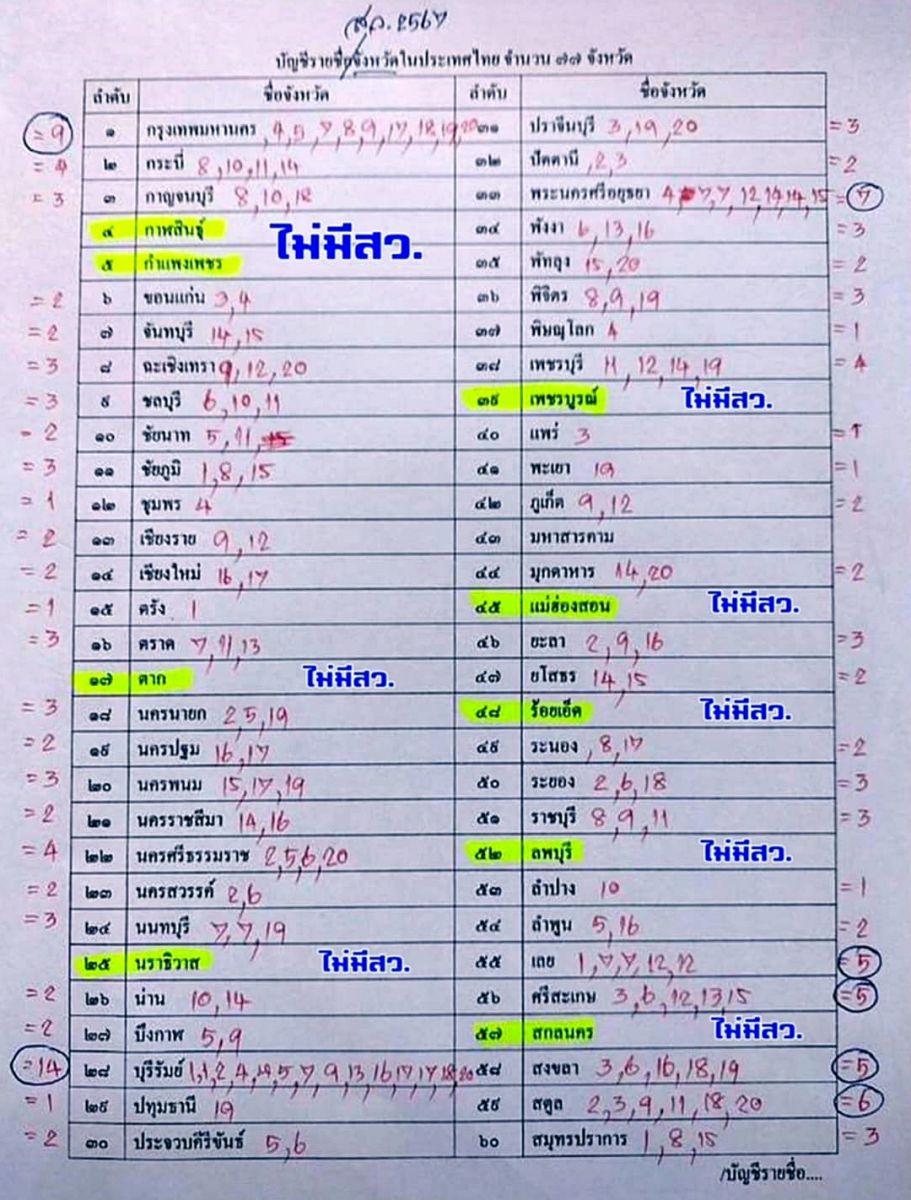 สว. 2567
บัญชีรายชื่อจังหวัดในประเทศไทย จำนวน ๗๗ จังหวัด
ลำดับ ชื่อจังหวัด ลำดับ ชื่อจังหวัด
=9 ๑ กรุงเทพมหานคร 4,5,7,8,9,17,18,19,20 ๓๑ ปราจีนบุรี 3,19,20 =3
=4 ๒ กระบี่ 8,10,11,14 ๓๒ ปัตตานี ,2,3 =2
=3 ๓ กาญจนบุรี 8,10,18 ๓๓ พระนครศรีอยุธยา 4,7,7,12,14,14,15 =7
๔ กาฬสินธุ์ ไม่มีสว. ๓๔ พังงา 6,13,16 =3
๕ กำแพงเพชร ๓๕ พัทลุง 15,20 =2
=2 ๖ ขอนแก่น 3,4 ๓๖ พิจิตร 8,9,19 =3
=2 ๗ จันทบุรี 14,15 ๓๗ พิษณุโลก 4 =1
=3 ๘ ฉะเชิงเทรา 9,12,20 ๓๘ เพชรบุรี 11,12,14,19 =4
=3 ๙ ชลบุรี 6,10,11 ๓๙ เพชรบูรณ์ ไม่มีสว.
=2 ๑๐ ชัยนาท 5,11, ๔๐ แพร่ 3 =1
=3 ๑๑ ชัยภูมิ 1,8,15 ๔๑ พะเยา 19 =1
=1 ๑๒ ชุมพร 4 ๔๒ ภูเก็ต 9,12 =2
=2 ๑๓ เชียงราย 9,12 ๔๓ มหาสารคาม
=2 ๑๔ เชียงใหม่ 16,17 ๔๔ มุกดาหาร 14,20 =2
=1 ๑๕ ตรัง 1 ๔๕ แม่ฮ่องสอน ไม่มีสว.
=3 ๑๖ ตราด 7,11,13 ๔๖ ยะลา 2,9,16 =3
๑๗ ตาก ไม่มีสว. ๔๗ ยโสธร 14,15 =2
=3 ๑๘ นครนายก 2,5,19 ๔๘ ร้อยเอ็ด ไม่มีสว.
=2 ๑๙ นครปฐม 16,17 ๔๙ ระนอง ,8,17 =2
=3 ๒๐ นครพนม 15,17,19 ๕๐ ระยอง 2,6,18 =3
=2 ๒๑ นครราชสีมา 14,16 ๕๑ ราชบุรี 8,9,11 =3
=4 ๒๒ นครศรีธรรมราช 2,5,6,20 ๕๒ ลพบุรี ไม่มีสว.
=2 ๒๓ นครสวรรค์ 2,6 ๕๓ ลำปาง 10 =1
=3 ๒๔ นนทบุรี 7,7,19 ๕๔ ลำพูน 5,16 =2
๒๕ นราธิวาส ไม่มีสว. ๕๕ เลย 1,7,7,12,12 =5
=2 ๒๖ น่าน 10,14 ๕๖ ศรีสะเกษ 3,6,12,13,15 =5
=2 ๒๗ บึงกาฬ 5,9 ๕๗ สกลนคร ไม่มีสว.
=14 ๒๘ บุรีรัมย์ 1,1,2,4,5,7,9,13,16,17,17,18,20 ๕๘ สงขลา 3,6,16,18,19 =5
=1 ๒๙ ปทุมธานี 19 ๕๙ สตูล 2,3,9,11,18,20 =6
=2 ๓๐ ประจวบคีรีขันธ์ 5,6 ๖๐ สมุทรปราการ 1,8,15 =3
/บัญชีรายชื่อ....